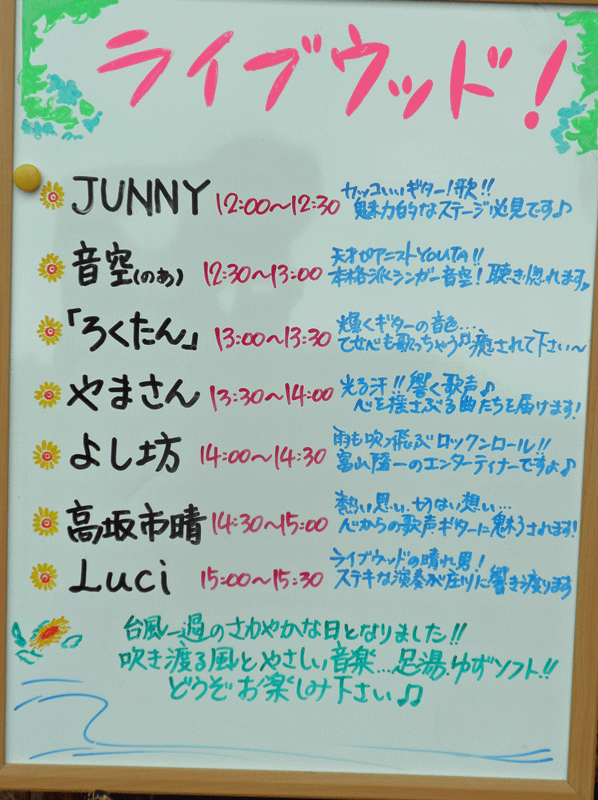 ライブウッド!
JUNNY 12:00〜12:30 カッコいいギター!歌!!
魅力的なステージ必見です♪
音空(のあ) 12:30〜13:00 天才ピアニストYOUTA!!
本格派シンガー音空!聴き惚れます♪
「ろくたん」 13:00〜13:30 輝くギターの音色…
てせべも歌っちゃう♫癒されて下さい〜
やまさん 13:30〜14:00 光る汗!!響く歌声♪
心を揺さぶる曲たちを届けます!
よし坊 14:00〜14:30 雨も吹っ飛ぶロックンロール!!
富山随一のエンターティナーですよ♪
高坂市晴 14:30〜15:00 熱い思い、切ない想い…
心からの歌声ギターに魅うされます!
Luci 15:00〜15:30 ライブウッドの晴れ男!
ステキな演奏が庄川に響き渡ります
台風一過のさわやかな日となりました!!
吹き渡る風とやさしい音楽…足湯、ゆずソフト!!
どうぞお楽しみ下さい♫